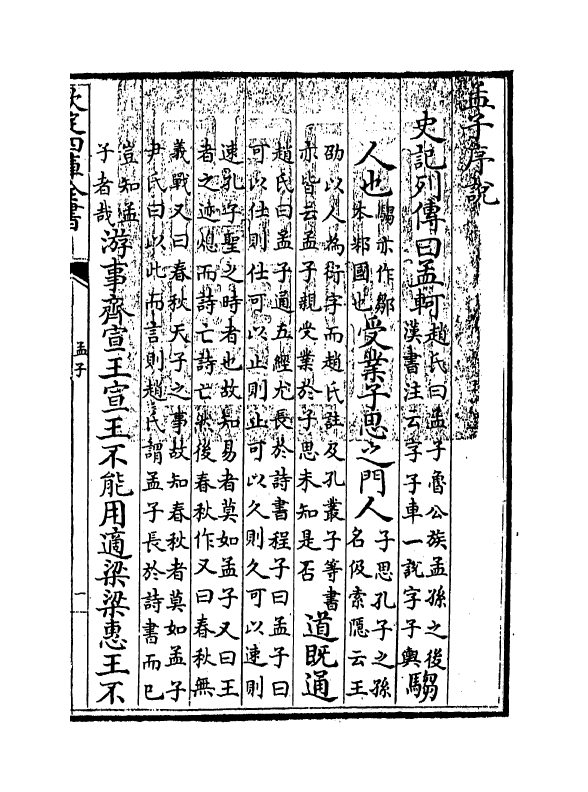 孟子序說
史記列傳曰孟軻
趙氏曰孟子魯公族孟孫之後
漢書注云字子車一說字子輿
騶
人也
騶亦作鄒
本邾國也
受業子思之門人
子思孔子之孫
名伋索隱云王
劭以人為衍字而趙氏註及孔叢子等書
亦皆云孟子親受業於子思未知是否
道既通
趙氏曰孟子通五經尤長於詩書程子曰孟子曰
可以仕則仕可以止則止可以久則久可以速則
速孔子聖之時者也故知易者莫如孟子又曰王
者之迹熄而詩亡詩亡然後春秋作又曰春秋無
義戰又曰春秋天子之事故知春秋者莫如孟子
尹氏曰以此而言則趙氏謂孟子長於詩書而已
豈知孟
子者哉
游事齊宣王宣王不能用適梁梁惠王不
欽定四庫全書
孟子
一